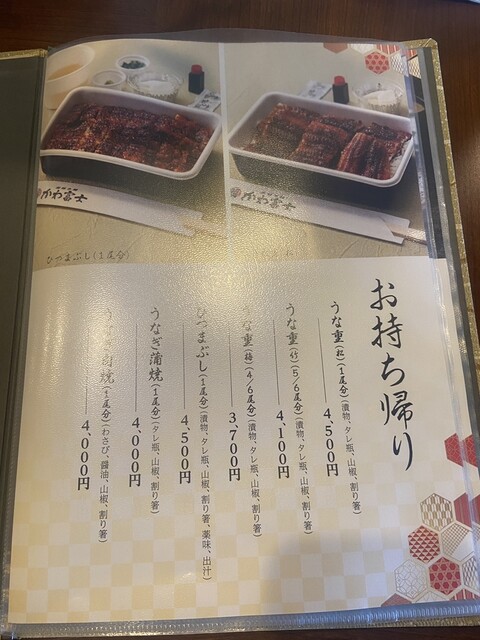 かわ富士
かわ富士
ひつまぶし(1尾分)
お持ち帰り
うな重(松)(1尾分)(漬物、タレ瓶、山椒、割り箸)
4,500円
うな重(竹)(5/6尾分)(漬物、タレ瓶、山椒、割り箸)
4,100円
うな重(梅)(4/6尾分)(漬物、タレ瓶、山椒、割り箸)
3,700円
ひつまぶし(1尾分)(漬物、タレ瓶、山椒、割り箸、薬味、出汁)
4,500円
うなぎ蒲焼(1尾分)(タレ瓶、山椒、割り箸)
4,000円
うなぎ白焼(1尾分)(わさび、醤油、山椒、割り箸)
4,000円